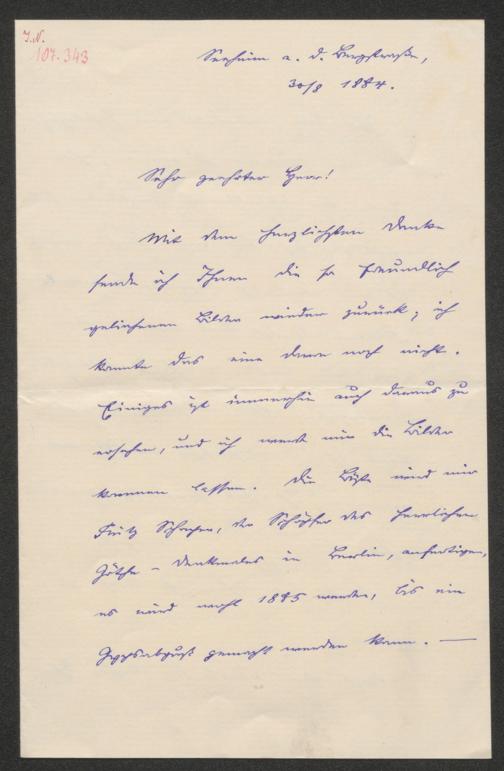 I.N.
107.343
Seeheim a. d. Bergstraße,
30/8 1884.
Sehr geehrter Herr!
Mit dem herzlichsten Danke
sende ich Ihnen die so freundlich
geliehenen Bilder wieder zurück; ich
kannte das eine davon noch nicht.
Einiges ist immerhin auch daraus zu
ersehen, und ich werde mir die Bilder
kommen lassen. Die Büste wird mir
Fritz Schaper, der Schöpfer des herrlichen
Göthe-Denkmales in Berlin, anfertigen,
es wird wohl 1885 werden, bis ein
Gypsabguß gemacht werden kann. —